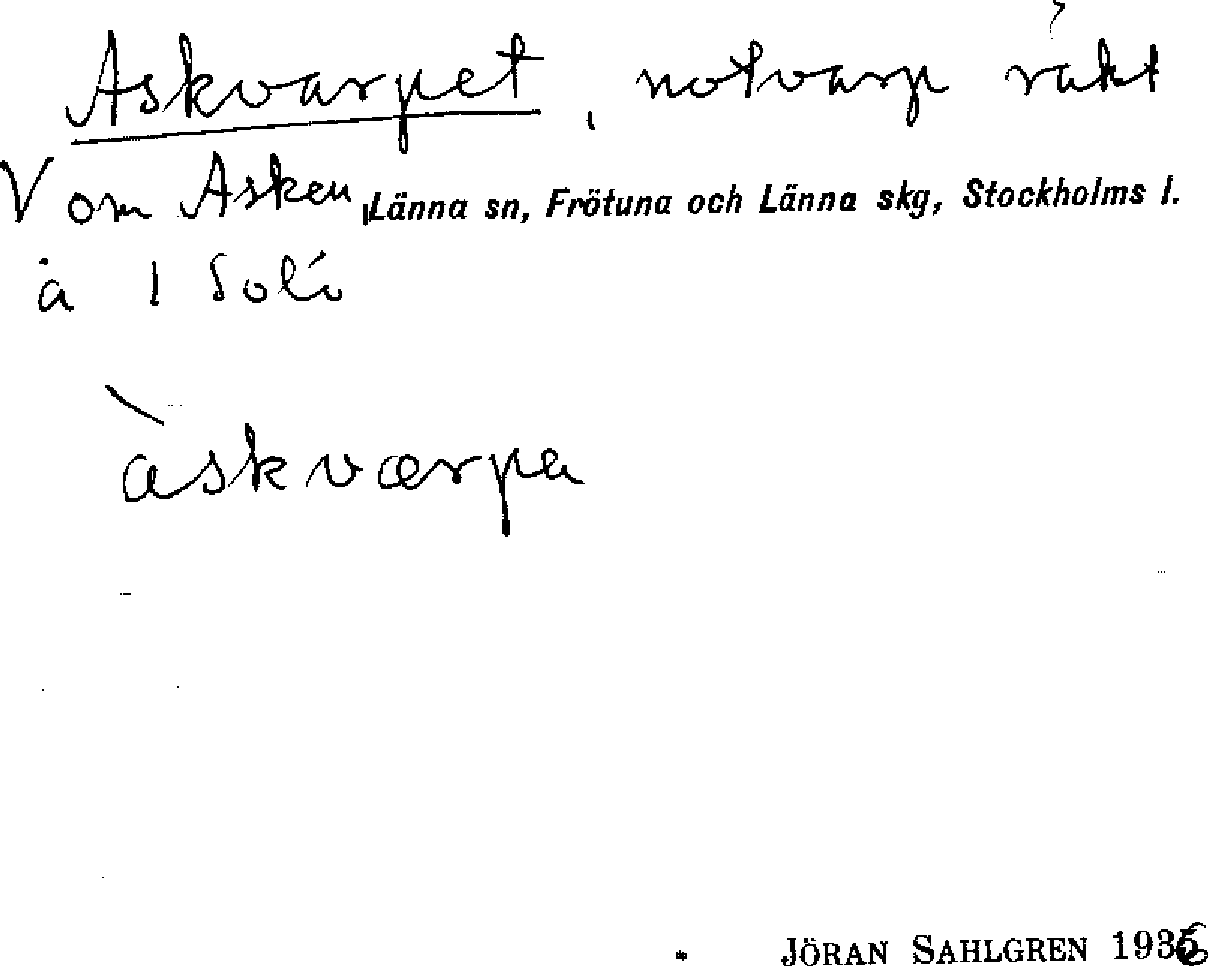 Askvarpet, notvarp räkt
V om Asken, Länna sn, Frötuna och Länna skg, Stockholms l.
å 1 Solö
àskværpa
JÖRAN SAHLGREN 1936